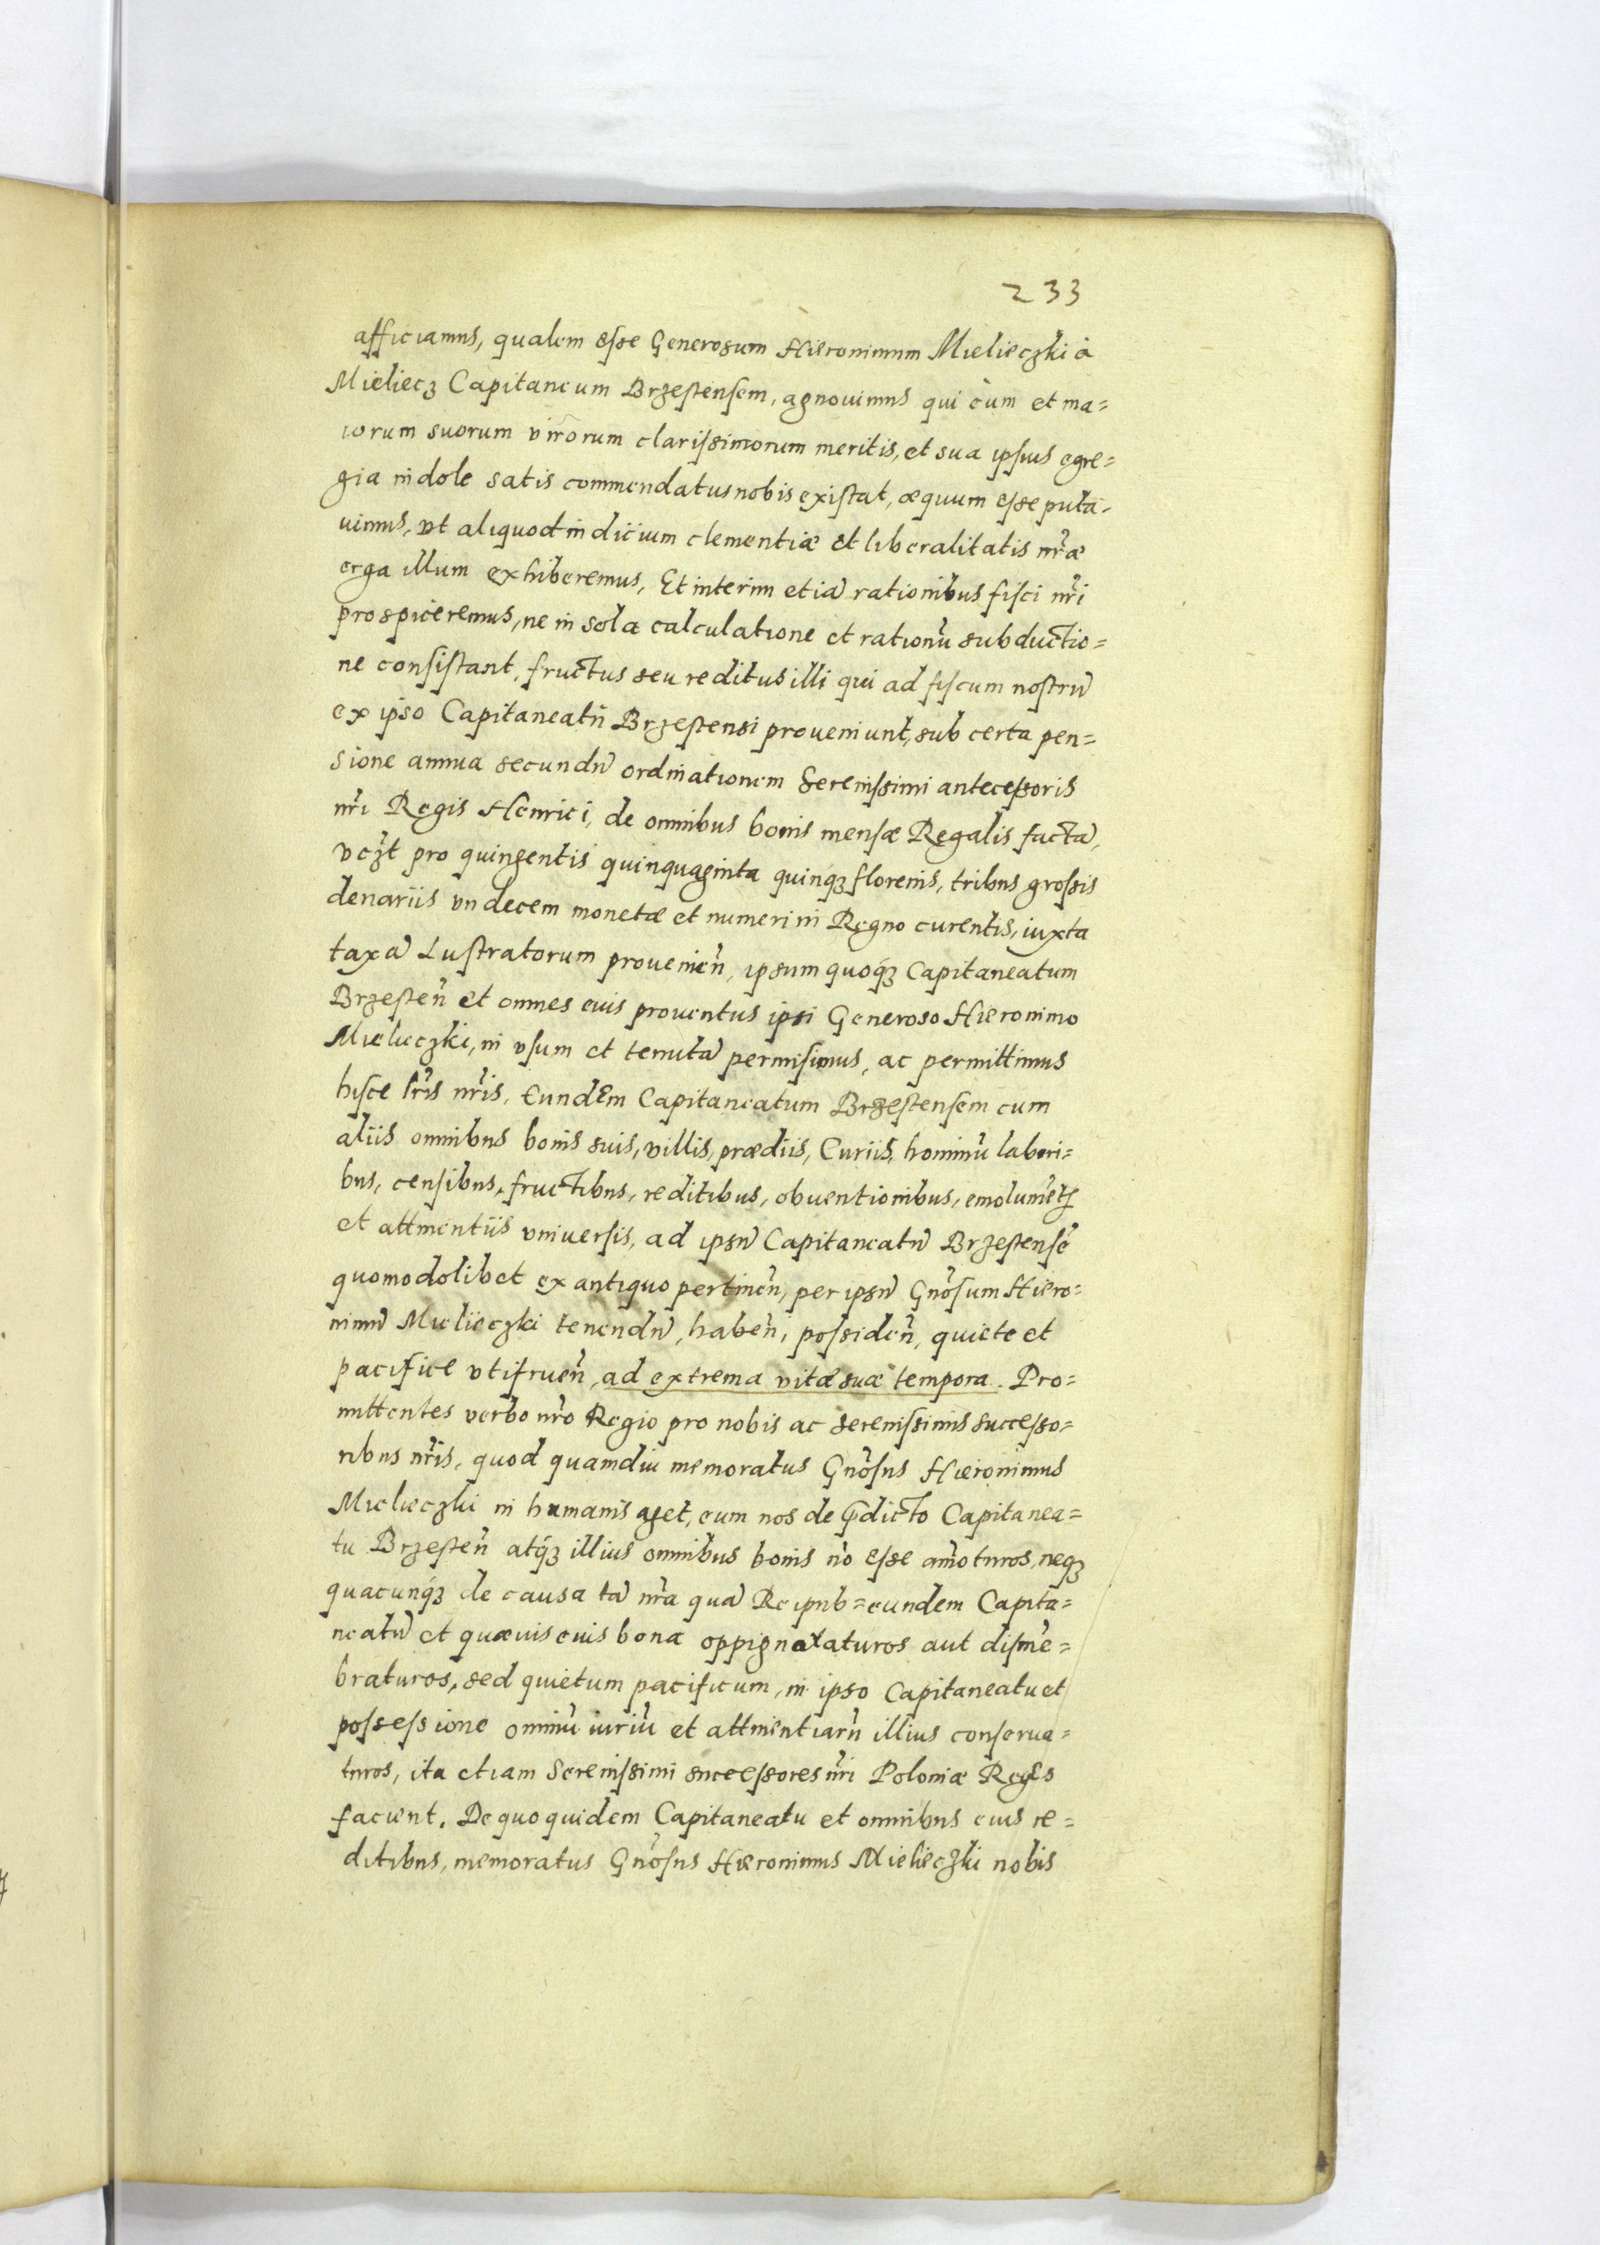 233
afficiamus, qualem esse Generosum Hieronimum Mielieczki à
Mieliecz Capitaneum Brzestensem, agnouimus qui cum et ma=
iorum suorum virorum clarissimorum meritis, et sua ipsius egre=
gia indole satis commendatus nobis existat, æquum esse puta-
uimus, vt aliquod indicium clementiæ et liberalitatis nr̃æ
erga illum exhiberemus, Et interim etiã rationibus fisci nr̃i
prospiceremus, ne in sola calculatione et rationũ subductio=
ne consistant, fructus seu reditus illi qui ad fiscum nostrũ
ex ipso Capitaneatũ Brzestensi proueniunt, sub certa pen=
sione annua secundũ ordinationem Serenissimi antecessoris
nr̃i Regis Henrici, de omnibus bonis mensæ Regalis factã,
vczt pro quingentis quinquaginta quinqz florenis, tribus grossis
denariis vndecem monetæ et numeri in Regno curentis, iuxta
taxã Lustratorum prouenieñ, ipsum quoqz Capitaneatum
Brzesteñ et omnes euis prouentus ipsi Generoso Hieronimo
Mielieczki, in vsum et tenutã permisimus, ac permittimus
hisce lr̃is nr̃is, Eundem Capitaneatum Brzestensem cum
aliis omnibus bonis suis, villis, prædiis, Curiis, hominũ labori=
bus, censibus, fructibus, reditibus, obuentionibus, emolumẽtis
et attinentiis vniuersis, ad ipsũ Capitaneatũ Brzestensẽ
quomodolibet ex antiquo pertineñ, per ipsũ Gñosum Hiero=
nimũ Mielieczki tenendũ, habeñ, possideñ, quiete et
pacifice vtifrueñ, ad extrema vitæ suæ tempora. Pro=
mittentes verbo nr̃o Regio pro nobis ac serenissimis successo=
ribus nr̃is, quod quamdiu memoratus Gñosus Hieronimus
Mielieczki in humanis aget, eum nos de p̃dicto Capitanea=
tu Brzesteñ atqz illius omnibus bonis nõ esse amoturos, neqz
quacunqz de causa tã nr̃a quã Reipub= eundem Capita=
neatũ et quæuis euis bona oppignoraturos aut dismẽ=
braturos, sed quietum pacificum, in ipso Capitaneatu et
possessione omniũ iuriũ et attinentiarũ illius conserua=
turos, ita etiam Serenissimi successores nr̃i Poloniæ Reges
facient. De quo quidem Capitaneatu et omnibus eius re=
ditibus, memoratus Gñosus Hieronimus Mielieczki nobis